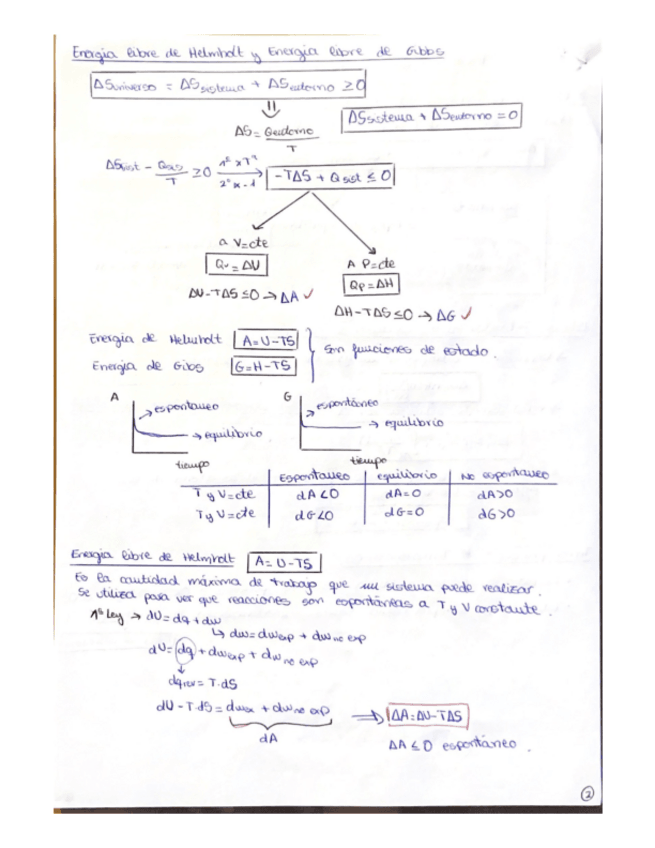 Energía libre de Helmholt y Energía libre de Gibbs
ΔSuniverso = ΔSsistema + ΔSentorno ≥ 0
ΔSsistema + ΔSentorno = 0
ΔS = Qentorno / T
ΔSsist - Qsis / T ≥ 0 1º x T 2º x -1 → -TΔS + Qsist ≤ 0
a V=cte
Qv = ΔU
ΔU-TΔS ≤ 0 → ΔA ✓
A P=cte
Qp = ΔH
ΔH-TΔS ≤ 0 → ΔG ✓
Energía de Helmholt A=U-TS
Energía de Gibs G=H-TS
Son funciones de estado.
A
espontaneo
→ equilibrio
tiempo
G
espontáneo
→ equilibrio
tiempo
Espontaneo equilibrio No espontaneo
T y V=cte dA<0 dA=0 dA>0
T y V=cte dG<0 dG=0 dG>0
Energía libre de Helmholt A= U-TS
Es la cantidad máxima de trabajo que un sistema puede realizar.
Se utiliza para ver que reacciones son espontáneas a T y V constante.
1ª Ley → dU= dq + dw
↳ dw= dwexp + dw no exp
dU= dq + dwexp + dw no exp
dqrev = T.dS
dU - T.dS = dwex + dw no exp ⇒ ΔA=ΔU-TΔS
dA
ΔA ≤ 0 espontáneo.
2